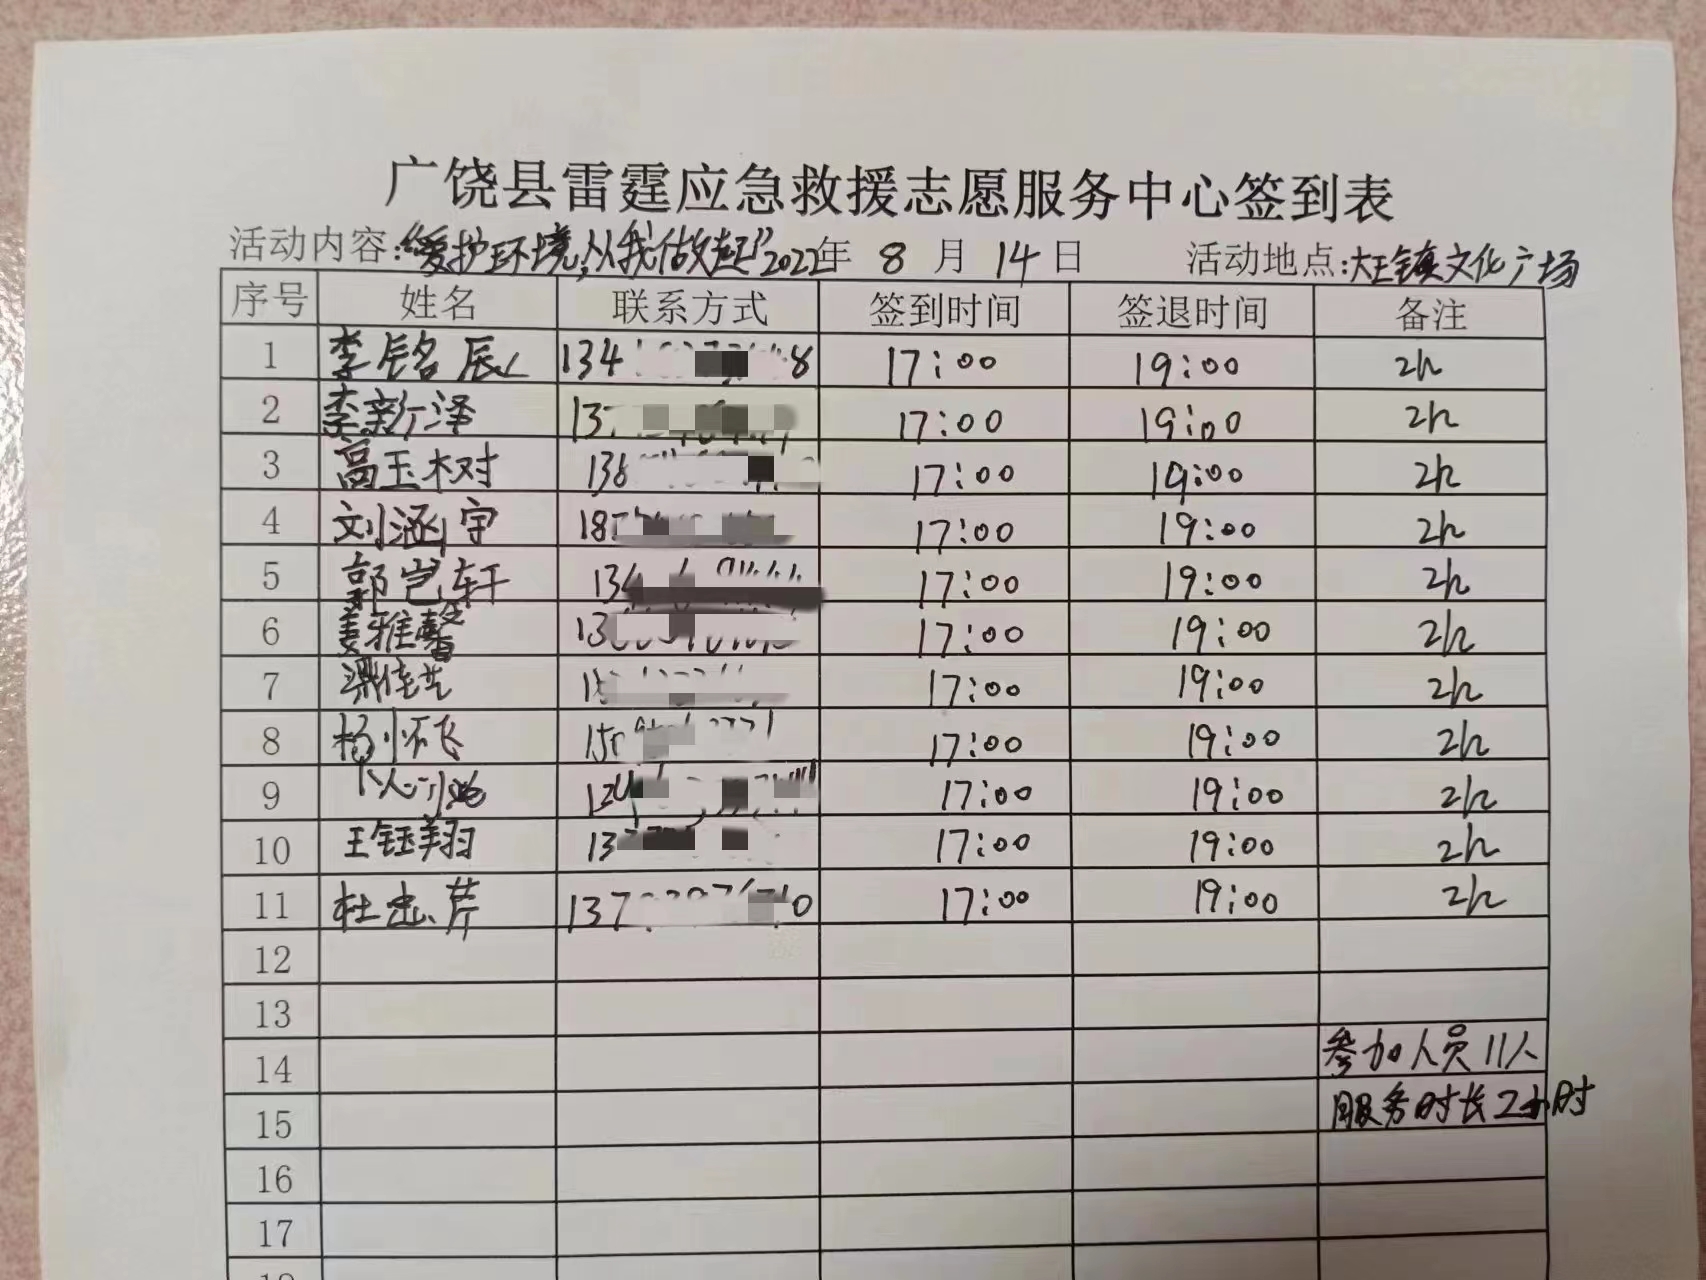 广饶县雷霆应急救援志愿服务中心签到表
活动内容:“爱护环境,从我做起” 2022年 8 月 14 日 活动地点:大王镇文化广场
序号 姓名 联系方式 签到时间 签退时间 备注
1 李铭辰 134 8 17:00 19:00 2h
2 李彭泽 137 17:00 19:00 2h
3 高玉树 138 17:00 19:00 2h
4 刘涵宇 18 17:00 19:00 2h
5 郭岂轩 134 17:00 19:00 2h
6 姜雅馨 13 17:00 19:00 2h
7 17:00 19:00 2h
8 杨怀飞 15 17:00 19:00 2h
9 17:00 19:00 2h
10 王钰翔 13 17:00 19:00 2h
11 杜忠芹 137 0 17:00 19:00 2h
12
13
14 参加人员11人
15 服务时长2小时
16
17